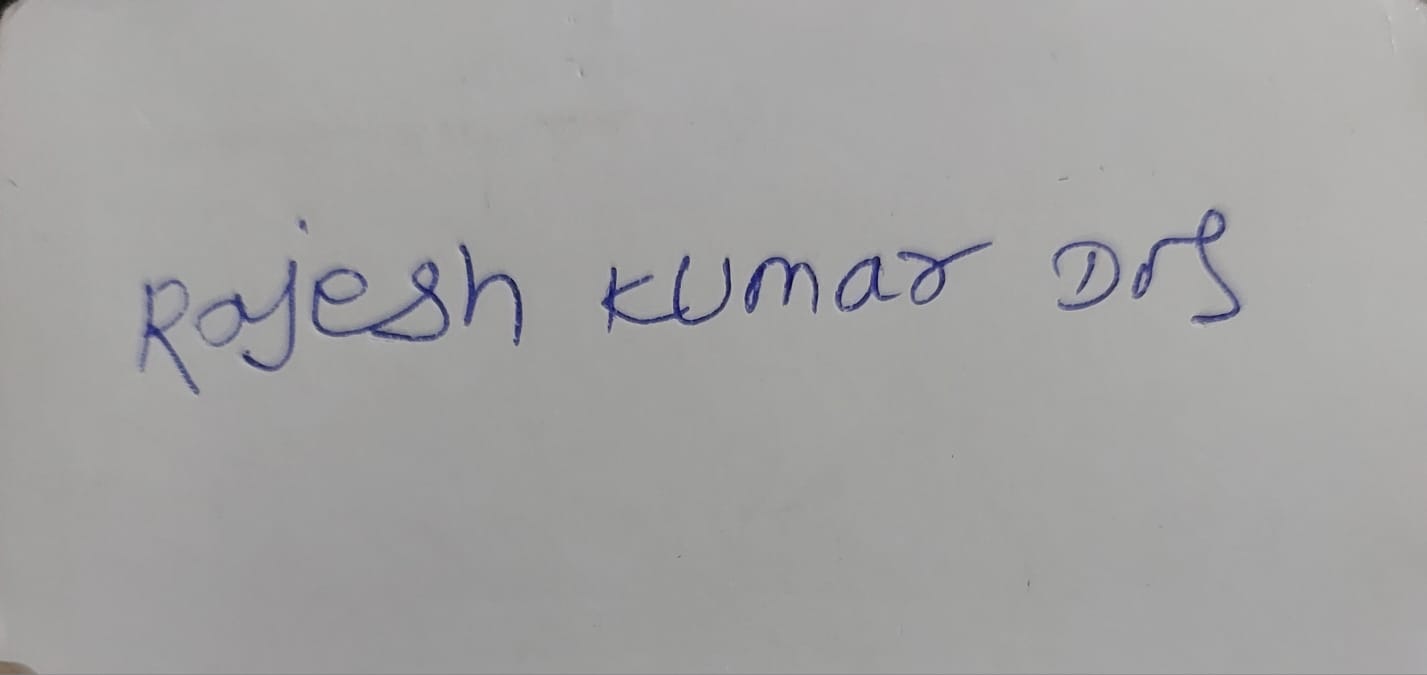 Rajesh Kumar Das